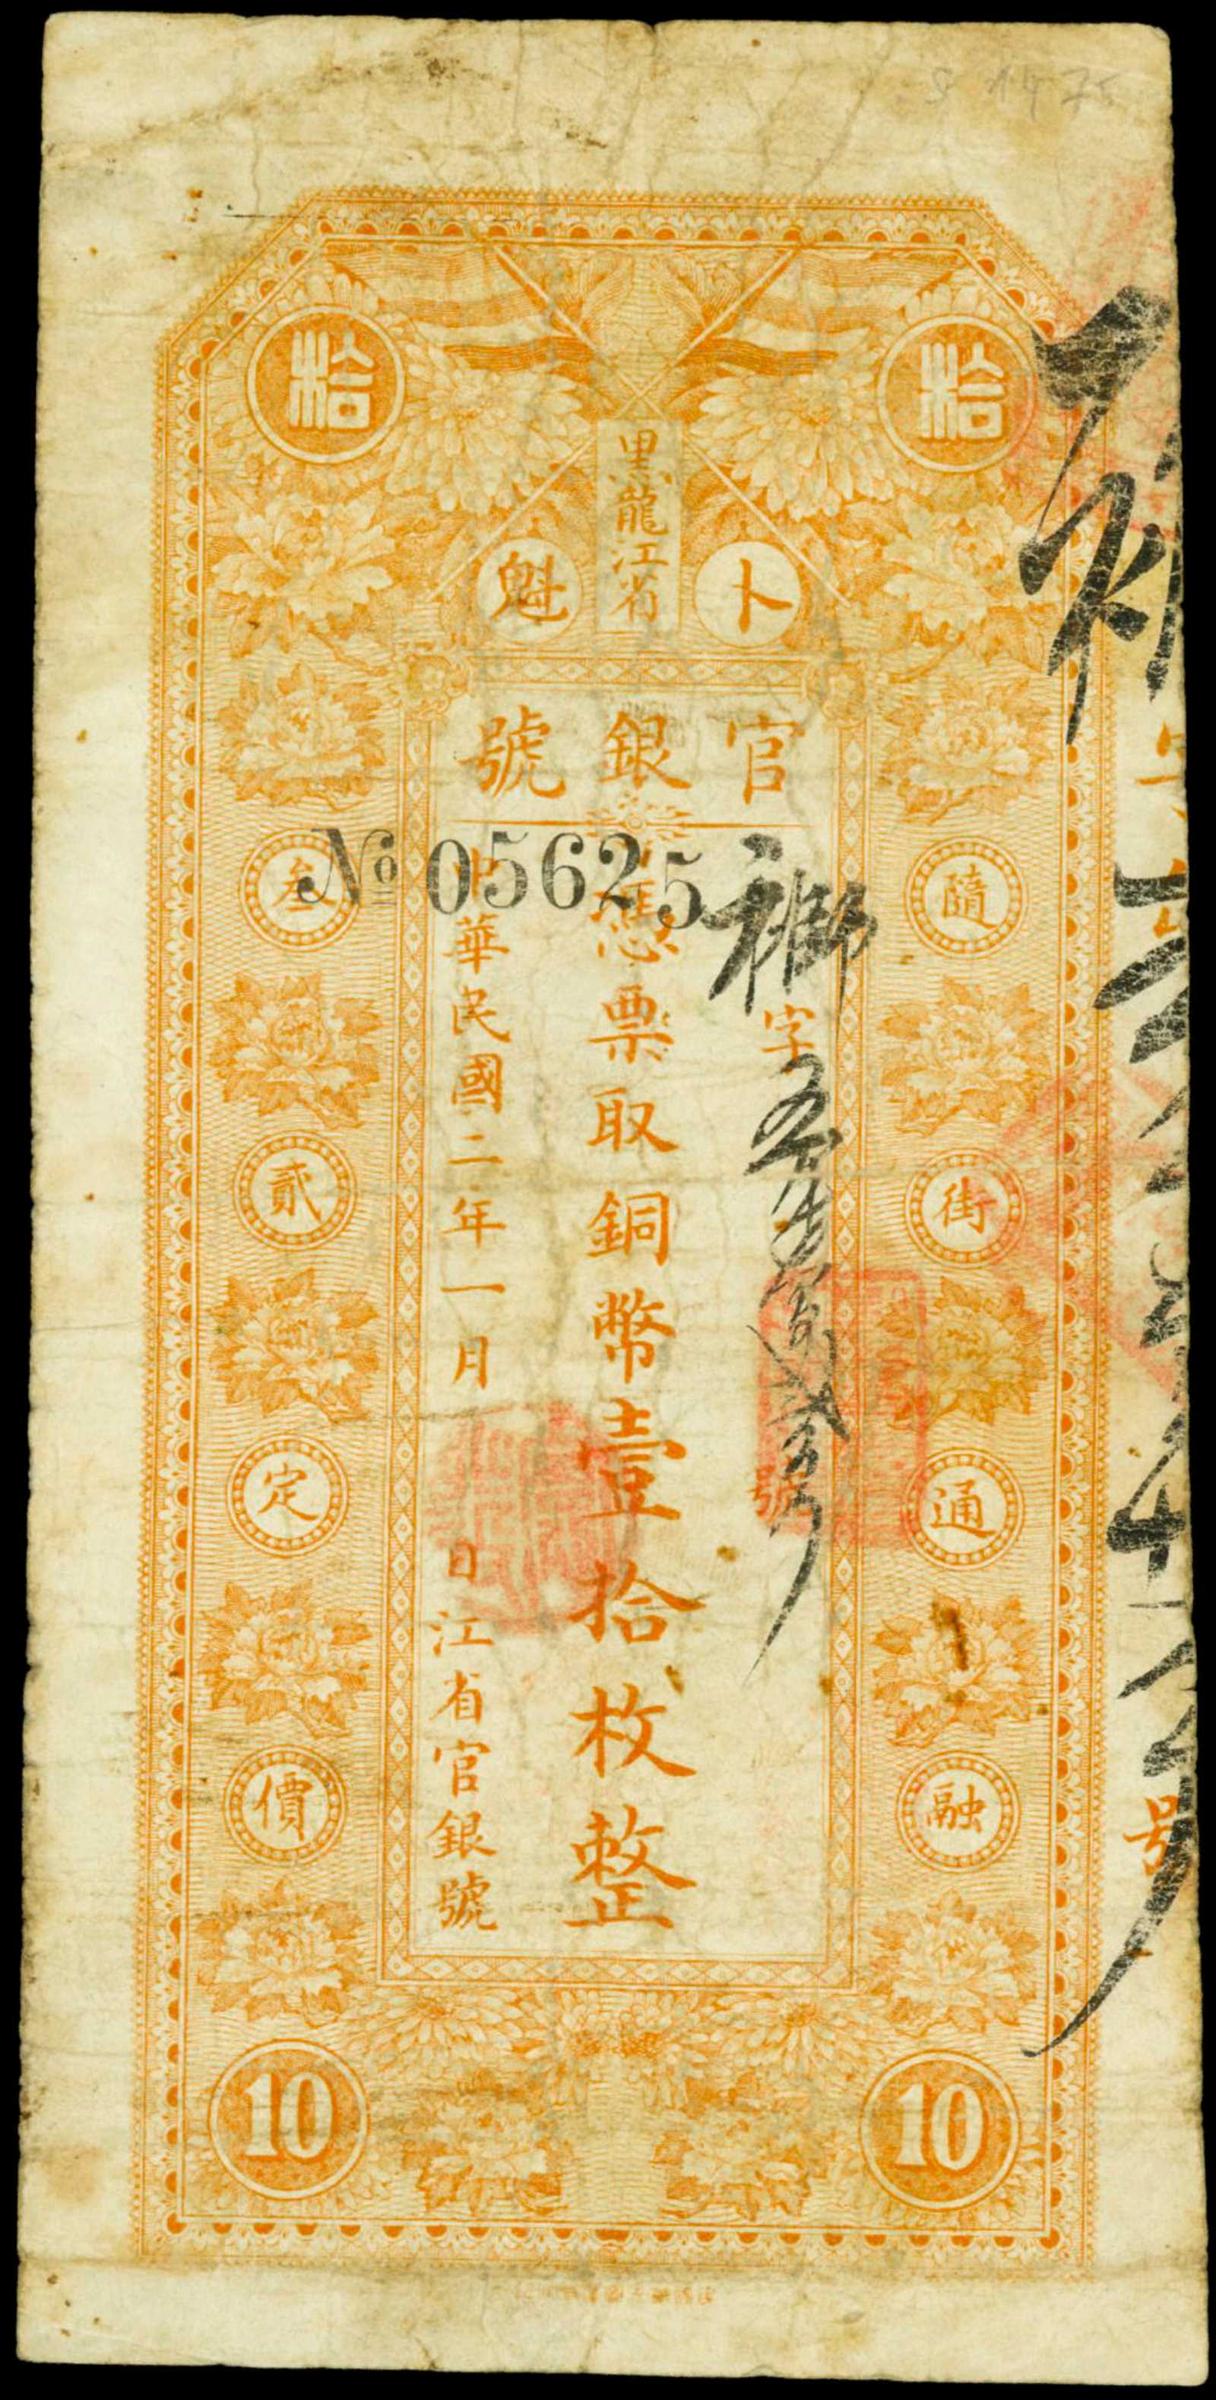 S 1475
拾
拾
黑龍江省
卜魁
官銀號
№ 05625
隨街通融
字
號
憑票取銅幣壹拾枚整
中華民國二年一月 日江省官銀號
叁貳定價
10
10